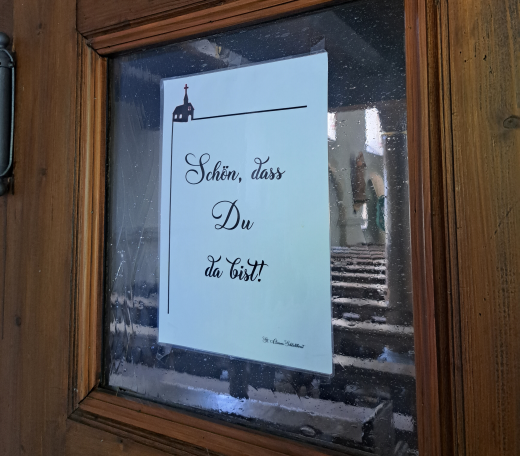 Schön, dass
Du
da bist!